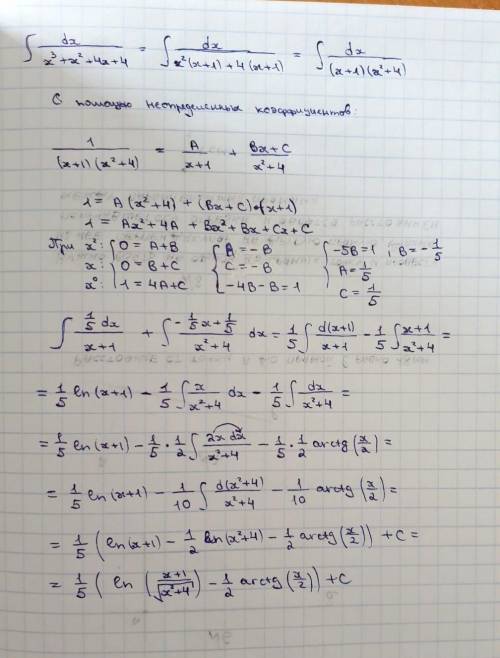 ∫ dx/(x³+x²+4x+4) = ∫ dx/(x²(x+1)+4(x+1)) = ∫ dx/((x+1)(x²+4))
С помощью неопределенных коэффициентов:
1/((x+1)(x²+4)) = A/(x+1) + (Bx+C)/(x²+4)
1 = A(x²+4) + (Bx+C)·(x+1)
1 = Ax²+4A + Bx²+Bx+Cx+C
При x²: { 0 = A+B { A = -B { -5B=1 ; B = -1/5
x: { 0 = B+C { C = -B { A = 1/5
x⁰: { 1 = 4A+C { -4B-B=1 { C = 1/5
∫ (1/5 dx)/(x+1) + ∫ (-1/5 x + 1/5)/(x²+4) dx = 1/5 ∫ d(x+1)/(x+1) - 1/5 ∫ (x+1)/(x²+4) =
= 1/5 ln(x+1) - 1/5 ∫ x/(x²+4) dx - 1/5 ∫ dx/(x²+4) =
= 1/5 ln(x+1) - 1/5 · 1/2 ∫ (2x dx)/(x²+4) - 1/5 · 1/2 arctg(x/2) =
= 1/5 ln(x+1) - 1/10 ∫ d(x²+4)/(x²+4) - 1/10 arctg(x/2) =
= 1/5 ( ln(x+1) - 1/2 ln(x²+4) - 1/2 arctg(x/2) ) + C =
= 1/5 ( ln ( (x+1)/√(x²+4) ) - 1/2 arctg(x/2) ) + C